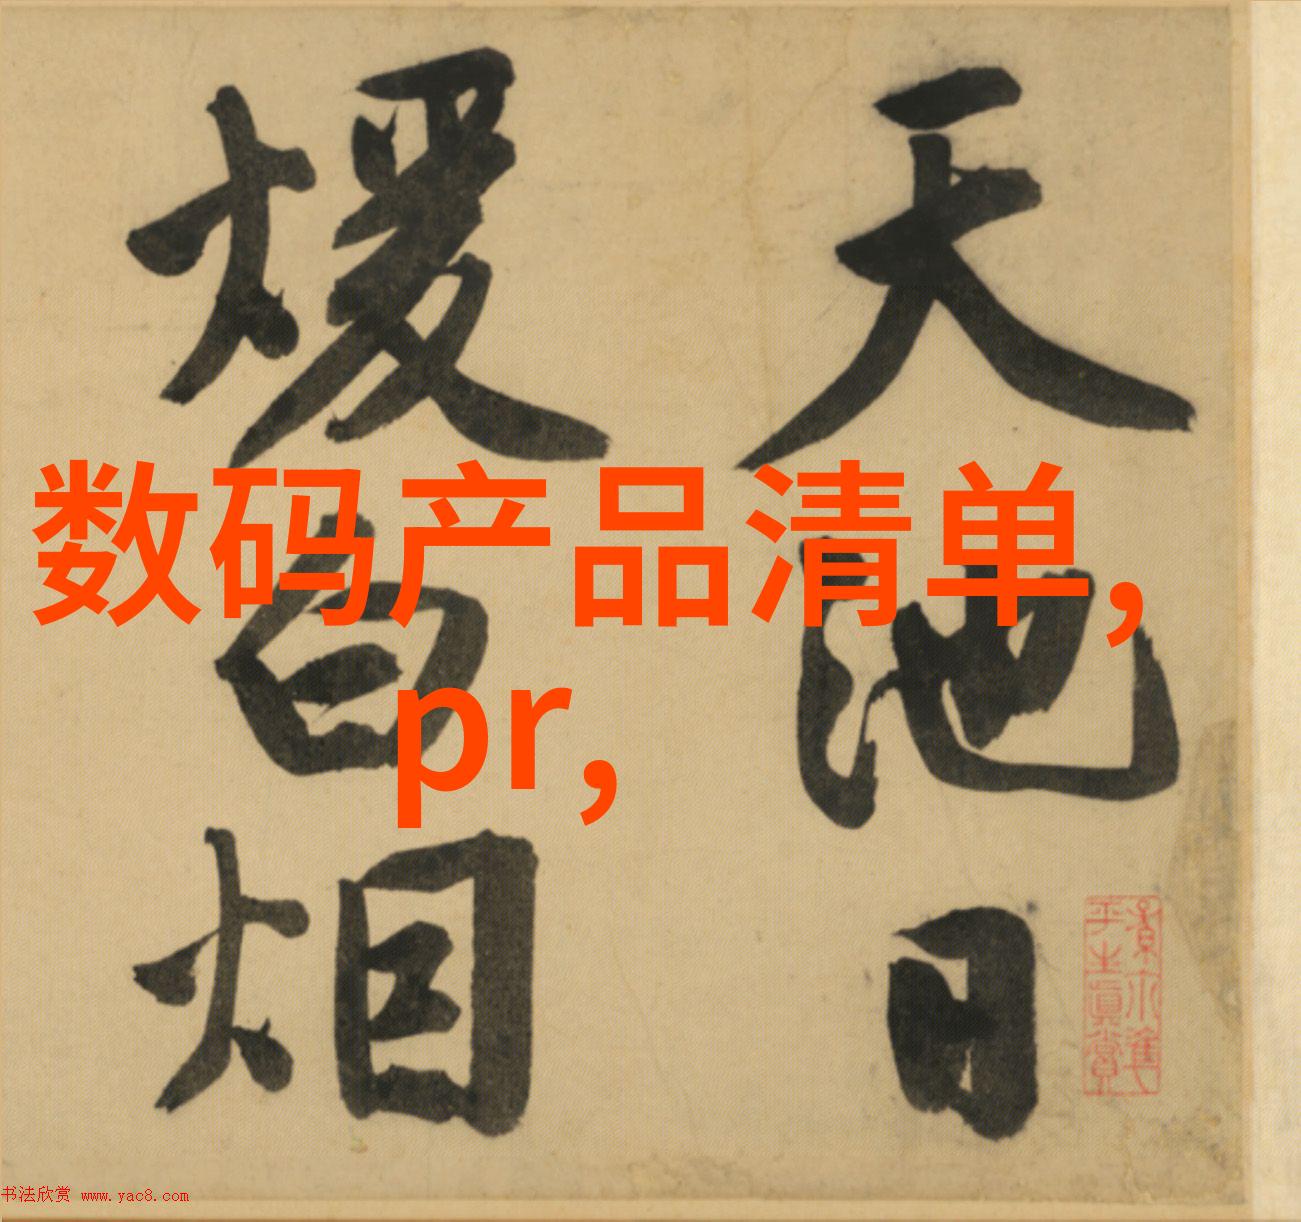 天池日
煖白烟
数码产品清单,
pr,
平生真賞
书法欣赏 www.yac8.com